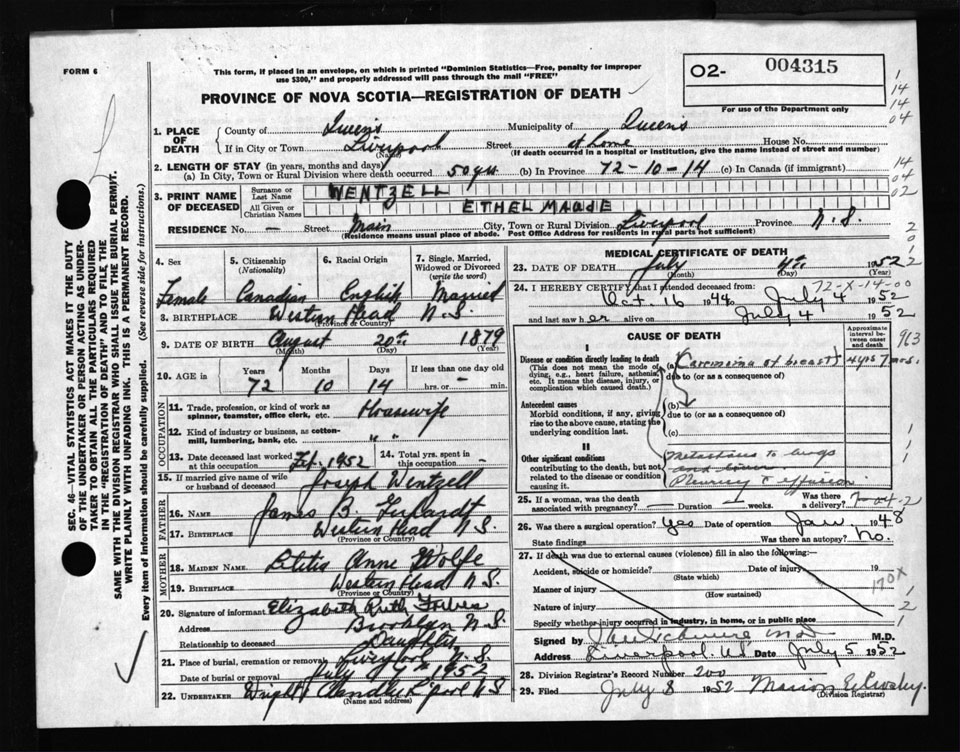 FORM 6
This form, if placed in an envelope, on which is printed "Dominion Statistics—Free, penalty for improper
use $300," and properly addressed will pass through the mail "FREE"
O2- 004315
For use of the Department only
PROVINCE OF NOVA SCOTIA—REGISTRATION OF DEATH
1. PLACE OF DEATH
County of Queens Municipality of Queens
If in City or Town Liverpool (Name) Street at home House No.
(If death occurred in a hospital or institution, give the name instead of street and number)
2. LENGTH OF STAY (in years, months and days)
(a) In City, Town or Rural Division where death occurred 50 yrs (b) In Province 72-10-14 (c) In Canada (if immigrant)
3. PRINT NAME OF DECEASED
Surname or Last Name WENTZELL
All Given or Christian Names ETHEL MAUDE
RESIDENCE No. — Street Main City, Town or Rural Division Liverpool Province N.S.
(Residence means usual place of abode. Post Office Address for residents in rural parts not sufficient)
4. Sex Female
5. Citizenship (Nationality) Canadian
6. Racial Origin English
7. Single, Married, Widowed or Divorced (write the word) Married
8. BIRTHPLACE Western Head N.S.
(Province or Country)
9. DATE OF BIRTH August 20th 1879
(Month) (Day) (Year)
10. AGE in Years Months Days If less than one day old
72 10 14 hrs. or — min.
OCCUPATION
11. Trade, profession or kind of work as spinner, teamster, office clerk, etc. Housewife
12. Kind of industry or business, as cotton-mill, lumbering, bank, etc. " "
13. Date deceased last worked at this occupation Feb. 1952 14. Total yrs. spent in this occupation —
15. If married give name of wife or husband of deceased Joseph Wentzell
FATHER
16. NAME James B.
17. BIRTHPLACE Western Head N.S.
(Province or Country)
MOTHER
18. MAIDEN NAME Letitia Anne Wolfe
19. BIRTHPLACE Western Head N.S.
(Province or Country)
20. Signature of informant Elizabeth Ruth Forbes
Address Brooklyn N.S.
Relationship to deceased Daughter
21. Place of burial, cremation or removal Liverpool N.S.
Date of burial or removal July 1952
22. UNDERTAKER Wright L'pool N.S.
(Name and address)
MEDICAL CERTIFICATE OF DEATH
23. DATE OF DEATH July 4th 1952
(Month) (Day) (Year)
72-X-14-00
24. I HEREBY CERTIFY that I attended deceased from:
Oct. 16 1944 to July 4 1952
and last saw her alive on July 4 1952
CAUSE OF DEATH
Approximate interval between onset and death
I
Disease or condition directly leading to death
(This does not mean the mode of dying, e.g., heart failure, asthenia, etc. It means the disease, injury, or complication which caused death.)
(a) Carcinoma of breast 4 yrs 7 mos.
due to (or as a consequence of)
Antecedent causes
Morbid conditions, if any, giving rise to the above cause, stating the underlying condition last.
(b)
due to (or as a consequence of)
(c)
II
Other significant conditions
contributing to the death, but not related to the disease or condition causing it.
Metastases to lungs
and
Pleurisy effusion
963
25. If a woman, was the death associated with pregnancy? — Duration — weeks. Was there a delivery?
26. Was there a surgical operation? Yes Date of operation Jan. 1948
State findings Was there an autopsy? No.
27. If death was due to external causes (violence) fill in also the following:—
Accident, suicide or homicide? Date of injury 19
(State which)
Manner of injury
(How sustained)
170X
Nature of injury
Specify whether injury occurred in industry, in home, or in public place
Signed by M.D.
Address Liverpool N.S. Date July 5 1952
28. Division Registrar's Record Number 200
29. Filed July 8 1952 Marion
(Division Registrar)
SEC. 46—VITAL STATISTICS ACT MAKES IT THE DUTY
OF THE UNDERTAKER OR PERSON ACTING AS UNDER-
TAKER TO OBTAIN ALL THE PARTICULARS REQUIRED
IN THE "REGISTRATION OF DEATH" AND TO FILE THE
SAME WITH THE DIVISION REGISTRAR WHO SHALL ISSUE THE BURIAL PERMIT.
WRITE PLAINLY WITH UNFADING INK. THIS IS A PERMANENT RECORD.
Every item of information should be carefully supplied. (See reverse side for instructions.)